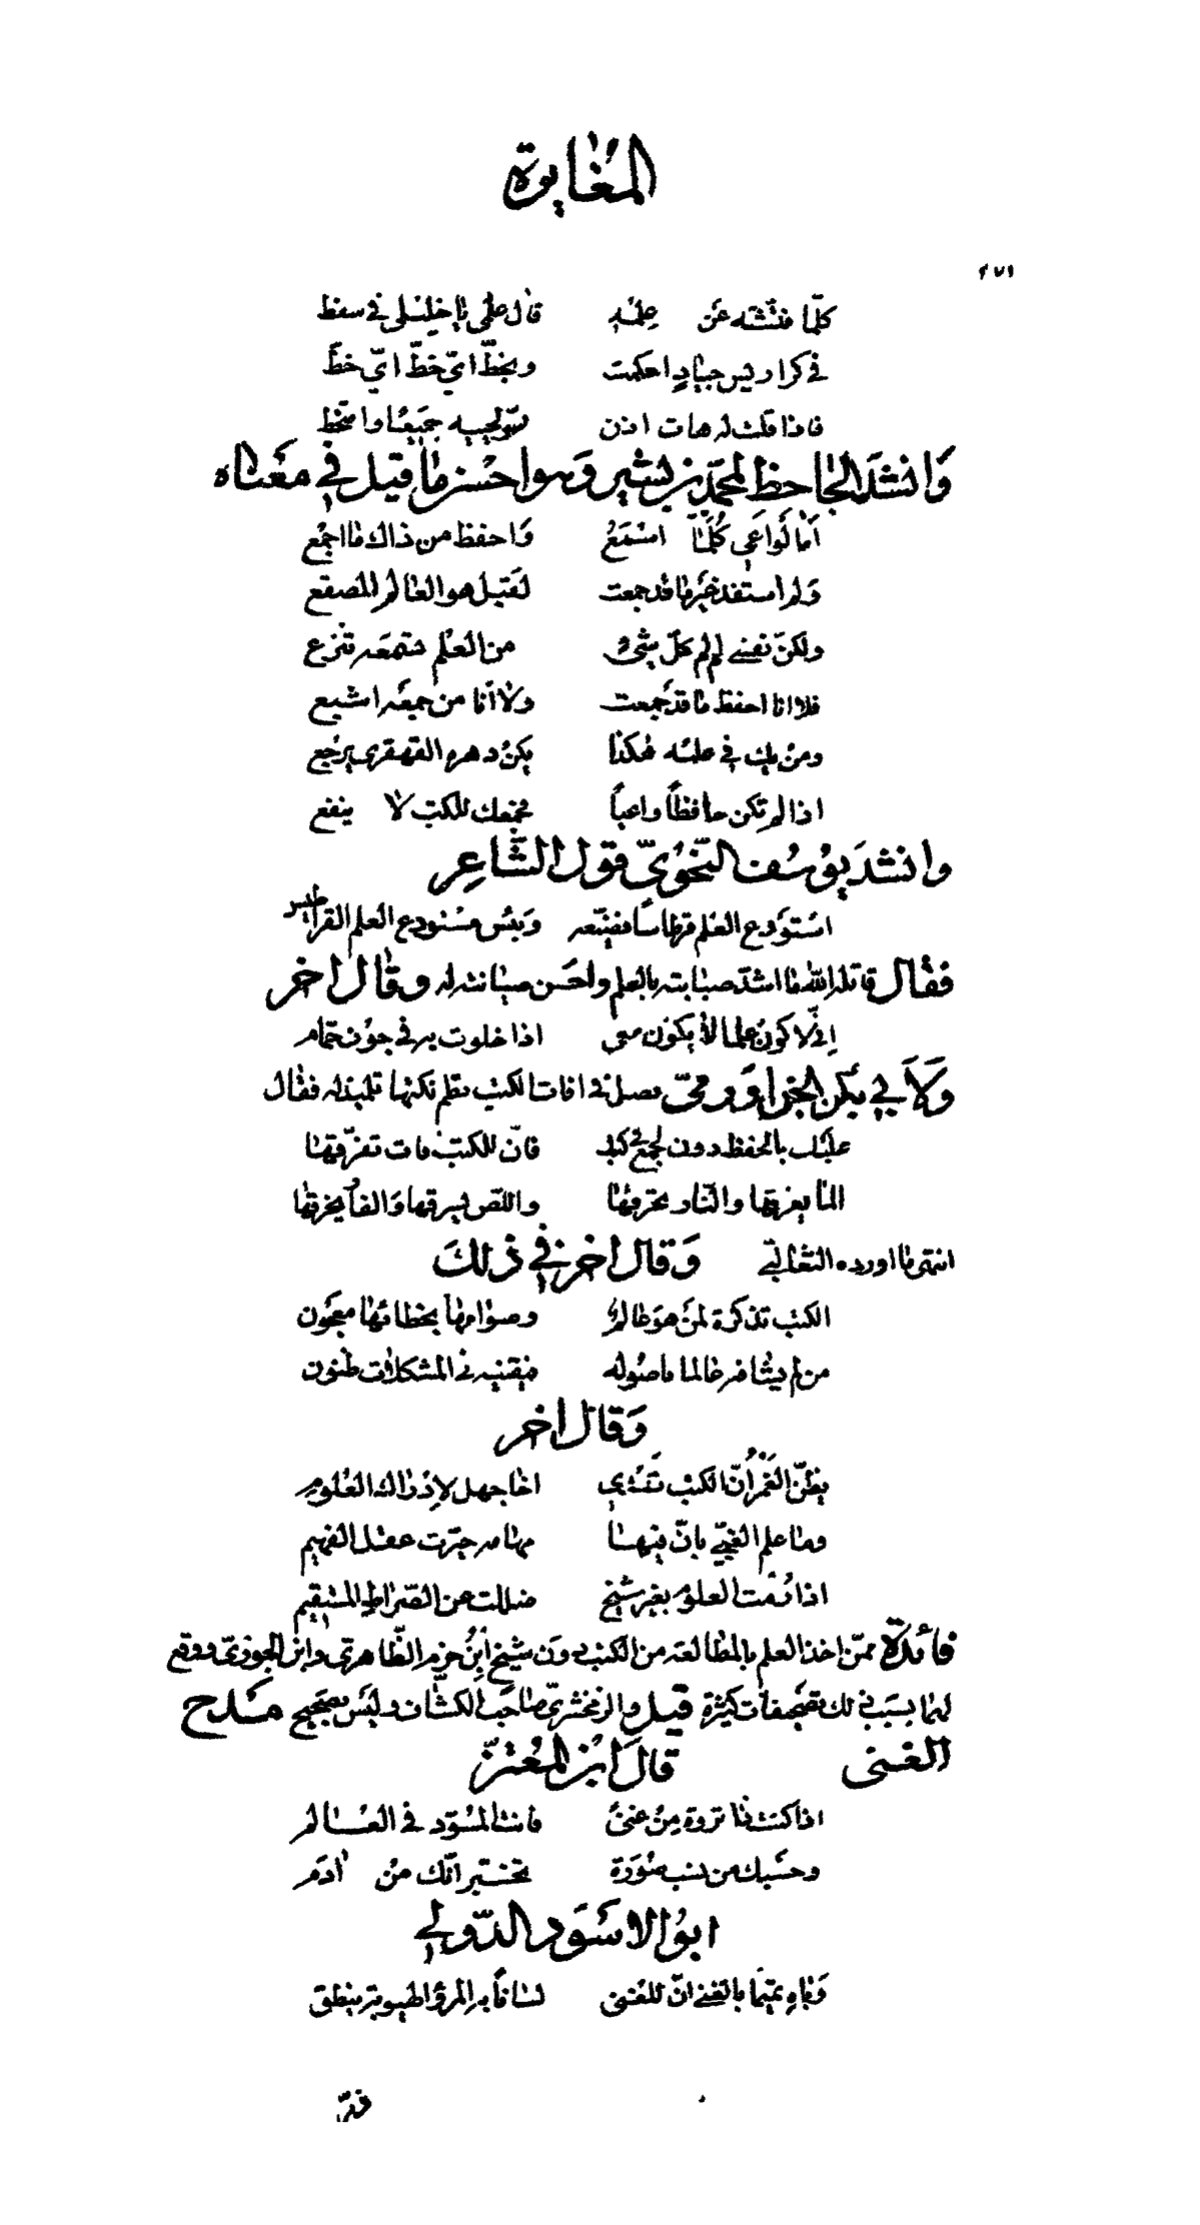 المغايرة
٢٧١
كلّما فتّشته عن علمه قال علمي يا خليلي في سفط
في كراريس جياد احكمت وبخطّ ايّ خطّ ايّ خطّ
فاذا قلت له هات اذن لحييه جميعا وامتخط
وانشد الجاحظ لمحمّد بن بشير وهو احسن ما قيل في معناه
اما لواعي كلّما اسمع واحفظ من ذاك ما اجمع
ولم استفد غير ما قد جمعت لقيل هو العالم المصقع
ولكنّ نفسي الى كلّ شيء من العلم تسمعه تنزع
فلا انا احفظ ما قد جمعت ولا انا من جمعه اشبع
ومن يك في علمه هكذا يكن دهره القهقرى يرجع
اذا لم تكن حافظاً واعياً فجمعك للكتب لا ينفع
وانشد يوسف النّحويّ قول الشّاعر
استودع العلم قرطاسا فضيّعه وبئس مستودع العلم القراطيس
فقال قاتله الله ما اشدّ صبابته بالعلم واحسن صيانته له وقال اخر
اذا خلوت به في جوف حمّام
فصل في افات الكتب نظم نكتها تلميذه فقال
عليك بالحفظ دون الجمع في كتب فانّ للكتب افات تفرّقها
الما يغرقها والنّار تحرقها واللّص يسرقها والفأر يخرقها
انتهى ما اورده الثعالبي وقال اخر في ذلك
الكتب تذكرة لمن هو عالم وصوابها بخطائها معجون
من لم يشافه عالما باصوله فيقينه في المشكلات ظنون
وقال اخر
يظنّ الغمر انّ الكتب تهدي اخا جهل لادراك العلوم
وما علم الغبيّ بانّ فيها مهامه حيّرت عقل الفهيم
اذا رمت العلوم بغير شيخ ضللت عن الصّراط المستقيم
فائدة ممّن اخذ العلم بالمطالعة من الكتب دون شيخ ابن حزم الظّاهريّ وابن الجوزيّ ووقع
لهما بسبب ذلك تصحيفات كثيرة قيل والزمخشريّ صاحب الكشّاف وليس بصحيح مدح
الغنى قال ابن المعتزّ
اذا كنت ذا ثروة من غنى فانت المسوّد في العالم
وحسبك من نسب صورة تخبّر انّك من ادم
ابو الاسود الدّولي
وباه تميما بالغنى انّ للغنى لسانا به المرؤ الهيوبة ينطق